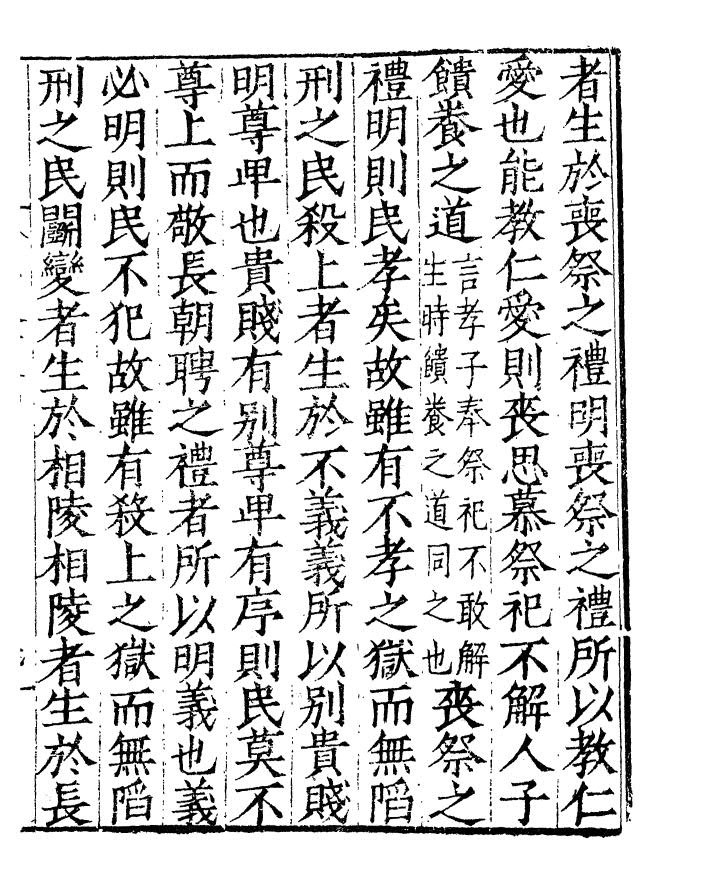 者生於喪祭之禮明喪祭之禮所以教仁
愛也能教仁愛則喪思慕祭祀不解人子
饋養之道言孝子奉祭祀不敢解生時饋養之道同之也喪祭之
禮明則民孝矣故雖有不孝之獄而無陷
刑之民殺上者生於不義義所以別貴賤
明尊卑也貴賤有别尊卑有序則民莫不
尊上而敬長朝聘之禮者所以明義也義
必明則民不犯故雖有殺上之獄而無陷
刑之民鬭變者生於相陵相陵者生於長